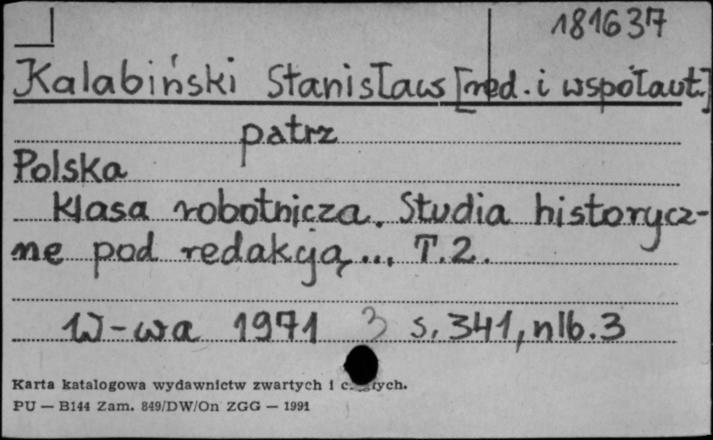 181637
Kalabiński Stanisław [red. i współaut.]
patrz
Polska
Klasa robotnicza. Studia historycz-
ne pod redakcją... T.2.
W-wa 1971 3 s. 341, nlb. 3
Karta katalogowa wydawnictw zwartych i
PU — B144 Zam. 849/DW/On ZGG — 1991